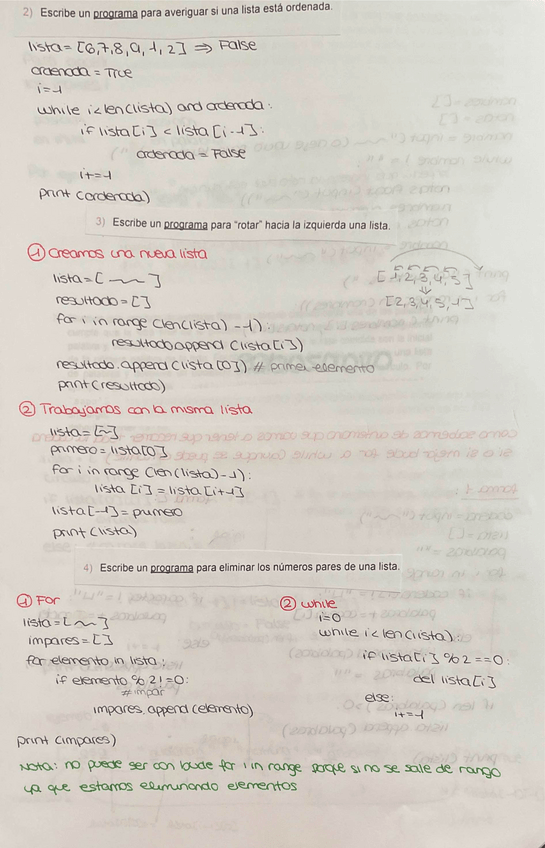 2) Escribe un programa para averiguar si una lista está ordenada.
lista = [6,7,8,9,1,2] ⇒ False
ordenada = True
i=1
while i<len(lista) and ordenada:
if lista[i] < lista[i-1]:
ordenada = False
i+=1
print(ordenada)
3) Escribe un programa para "rotar" hacia la izquierda una lista.
① Creamos una nueva lista
lista = [ ~~ ]
resultado = [ ]
for i in range (len(lista) -1):
resultado append (lista[i])
resultado. append (lista [0]) # primer elemento
print (resultado)
[1,2,3,4,5]
⇓
[2,3,4,5,1]
② Trabajamos con la misma lista
lista = [~]
primero = lista[0]
for i in range (len(lista)-1):
lista [i] = lista[i+1]
lista[-1] = primero
print (lista)
4) Escribe un programa para eliminar los números pares de una lista.
① For
lista = [ ~~ ]
impares = [ ]
for elemento in lista:
if elemento % 2 != 0:
# impar
impares. append (elemento)
print (impares)
② while
i=0
while i<len(lista):
if lista[i] % 2 == 0:
del lista[i]
else:
i+=1
Nota: no puede ser con bucle for i in range porque si no se sale de rango
ya que estamos eliminando elementos